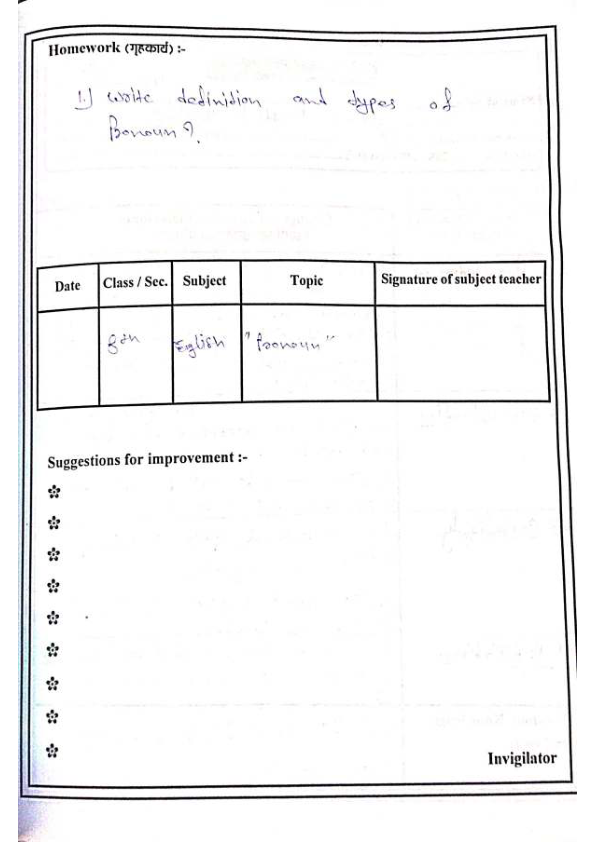 Homework (गृहकार्य) :-
1.) write definition and types of
Pronoun?
Date Class / Sec. Subject Topic Signature of subject teacher
8th English "Pronoun"
Suggestions for improvement :-
Invigilator